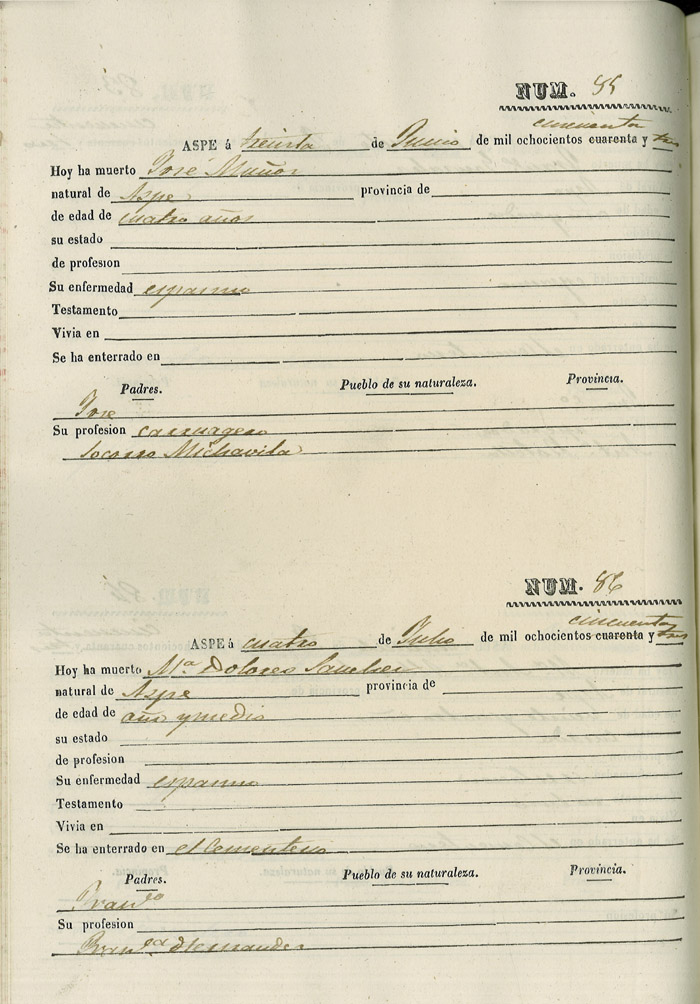 NUM. 85
cincuenta
ASPE á treinta de Junio de mil ochocientos cuarenta y tres
Hoy ha muerto José Muñoz
natural de Aspe provincia de
de edad de cuatro años
su estado
de profesion
Su enfermedad espasmo
Testamento
Vivia en
Se ha enterrado en
Padres. Pueblo de su naturaleza. Provincia.
Jose
Su profesion carruagero
Socorro Michavila
NUM. 86
cincuenta
ASPE á cuatro de Julio de mil ochocientos cuarenta y tres
Hoy ha muerto Mª Dolores Sanchez
natural de Aspe provincia de
de edad de año y medio
su estado
de profesion
Su enfermedad espasmo
Testamento
Vivia en
Se ha enterrado en el Cementerio
Padres. Pueblo de su naturaleza. Provincia.
Franco
Su profesion
Franca Hernandez